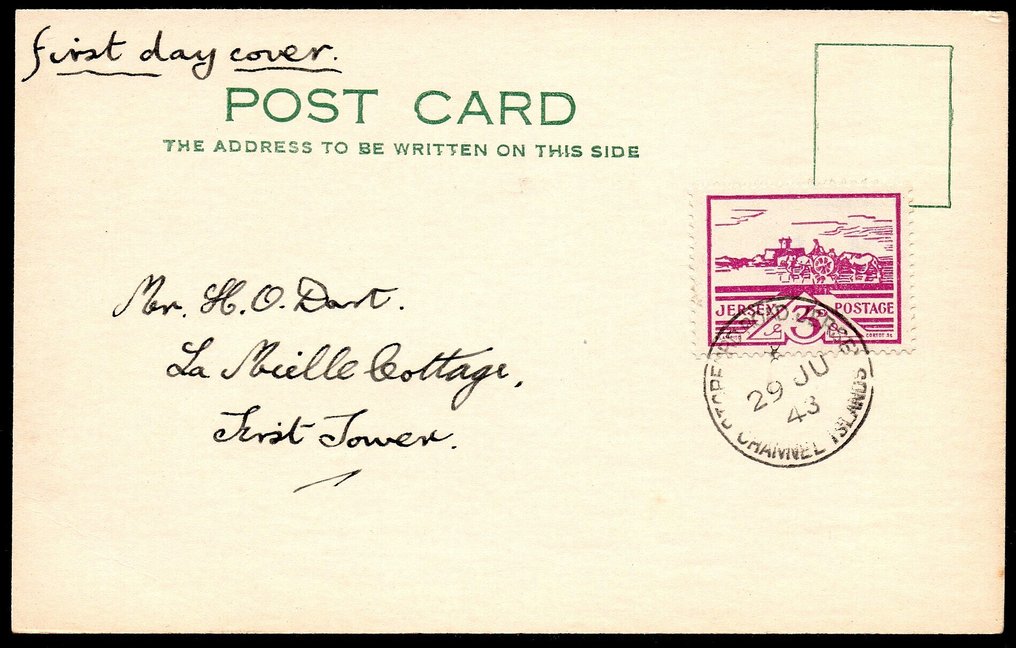 first day cover.
POST CARD
THE ADDRESS TO BE WRITTEN ON THIS SIDE
JERSEY 3D POSTAGE
29 JU
43
CHANNEL ISLANDS
Mr. H. O. Dart.
La Mielle Cottage,
First Tower.